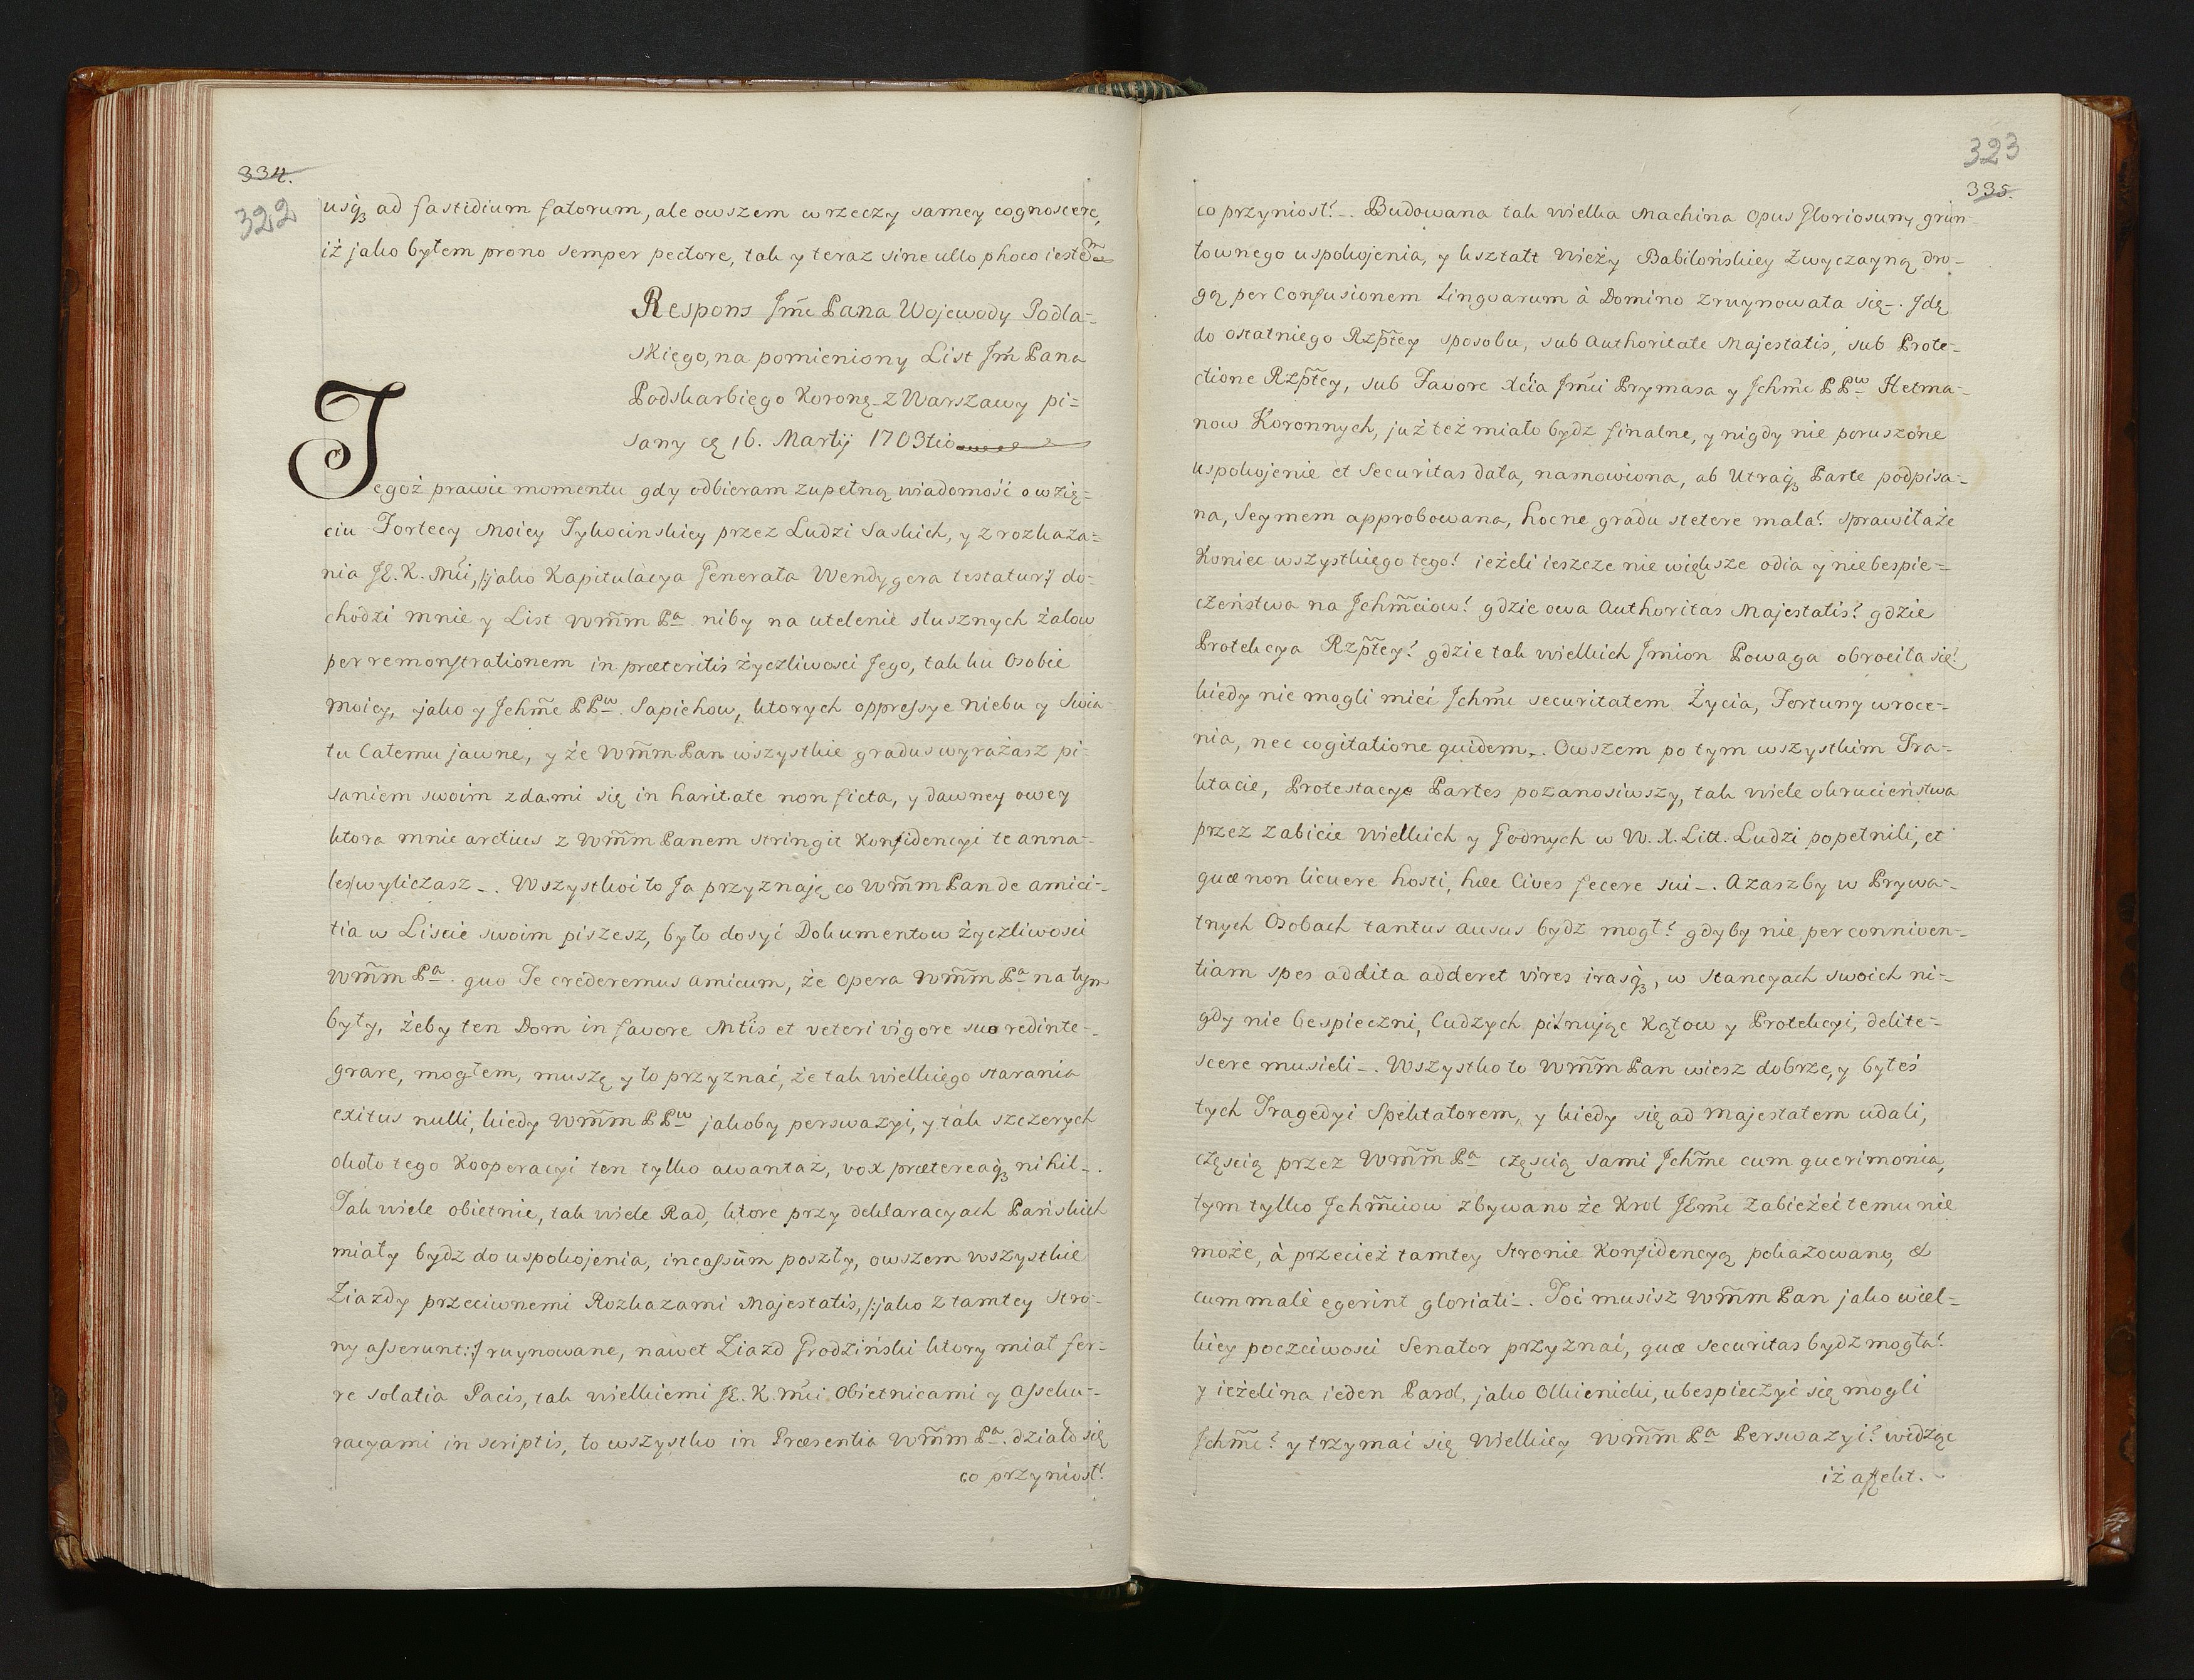 334.
322
usq3 ad fastidium fatorum, ale owszem w rzeczy samey cognoscere,
iż jako byłem prono semper pectore, tak y teraz sine ullo phoco iestem
Respons Jm̃c Pana Wojewody Podla=
skiego, na pomieniony List Jm̃ Pana
Podskarbiego Koronę z Warszawy pi=
sany ę 16. Martij 1703tio
Jegoż prawie momentu gdy odbieram zupełną wiadomość o wzię=
ciu Fortecy Moiey Tykocinskiey przez Ludzi Saskich, y z rozkaza=
nia JE. K. Mći, /:jako Kapitulacya Generała Wendygera testatur:/ do=
chodzi mnie y List Wm̃m Pa. niby na utelenie słusznych żalow
per remonstrationem in præteritis życzliwosci Jego, tak ku Osobie
moiey, jako y Jchm̃c PPw. Sapiehow, ktorych oppressye niebu y Swia=
tu Całemu jawne, y że Wm̃m Pan wszystkie gradus wyrażasz pi=
saniem swoim zda mi się in karitate non ficta, y dawney owey
ktora mnie arctius z Wm̃m Panem stringit Konfidencyi te anna=
les wyliczasz -. Wszystko to Ja przyznaję co Wm̃m Pan de amici=
tia w Liscie swoim piszesz, było dosyć Dokumentow życzliwosci
Wm̃m Pa. quo Te crederemus amicum, że opera Wm̃m Pa na tym
były, żeby ten Dom in favore Mtis et veteri vigore suo redinte=
grare, mogłem, muszę y to przyznać, że tak wielkiego starania
exitus nulli, kiedy Wm̃m PPw jakoby perswazyi, y tak szczerych
około tego Kooperacyi ten tylko awantaż, vox prætereaq3 nihil -.
Tak wiele obietnic, tak wiele Rad, ktore przy deklaracyach Pańskich
miały bydz do uspokojenia, incassùm poszły, owszem wszystkie
Ziazdy przeciwnemi Rozkazami Majestatis, /:jako z tamtey stro=
ny asserunt:/ ruynowane, nawet Ziazd Grodziński ktory miał fer=
re solatia Pacis, tak wielkiemi JE. K. Mći Obietnicami y Asseku=
racyami in scriptis, to wszystko in Præsentia Wm̃m Pa. działo się
co przyniosł?
323
335.
co przyniosł? -. Budowana tak wielka Machina Opus Gloriosum, grun=
townego uspokojenia, y ksztalt Wieży Babilońskiey Zwyczayną dro=
gą per Confusionem Linguarum à Domino zruynowała się -. Jdę
do ostatniego Rzp̃tey sposobu, sub Authoritate Majestatis, sub Prote=
ctione Rzp̃tey, sub Favore Xcia Jm̃ci Prymasa y Jchm̃c PPw Hetma=
now Koronnych, już też miało bydz finalne, y nigdy nie poruszone
uspokojenie et Securitas data, namowiona, ab Utraq3 Parte podpisa=
na, Seymem approbowana, hocne gradu stetere mala? sprawiłaże
Koniec wszystkiego tego? ieżeli ieszcze nie większe odia y niebespie=
czeństwa na Jchm̃ciow? gdzie owa Authoritas Majestatis? gdzie
Protekcya Rzp̃tey? gdzie tak wielkich Jmion Powaga obrociła się?
kiedy nie mogli mieć Jchm̃c securitatem Życia, Fortuny wroce=
nia, nec cogitatione quidem -. Owszem po tym wszystkim Tra=
ktacie, Protestacye Partes pozanosiwszy, tak wiele okrucieństwa
przez zabicie Wielkich y Godnych w W. X. Litt. Ludzi popełnili, et
quæ non licuere hosti, hæc Cives fecere sui -. Azaszby w Prywa=
tnych Osobach tantus ausus bydz mogł? gdyby nie per conniven=
tiam spes addita adderet vires irasq3, w stancyach swoich ni=
gdy nie bespieczni, Cudzych pilnując Kątow y Protekcyi, delite=
scere musieli -. Wszystko to Wm̃m Pan wiesz dobrze, y byłeś
tych Tragedyi Spektatorem, y kiedy się ad Majestatem udali,
częscią przez Wm̃m Pa częscią sami Jchm̃c cum querimonia,
tym tylko Jchm̃ciow zbywano że Krol JEm̃c zabieżeć temu nie
może, à przecież tamtey stronie Konfidencyą pokazowano, et
cum malè egerint gloriati -. Toć musisz Wm̃m Pan jako wiel=
kiey poczciwosci Senator przyznać, quæ securitas bydz mogła?
y ieżeli na ieden Parol, jako Olkienicki, ubespieczyć się mogli
Jchm̃c? y trzymać się Wielkiey Wm̃m Pa Perswazyi? widząc
iż affekt.